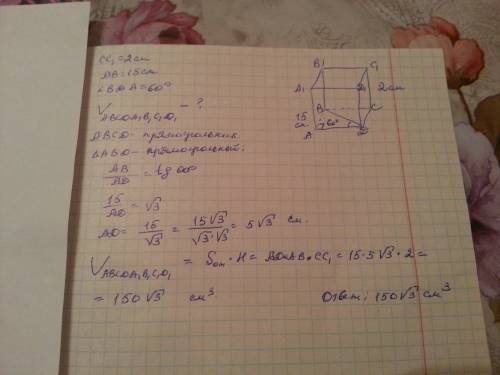 CC₁ = 2 см
AB = 15 см
∠BDA = 60°
V ABCDA₁B₁C₁D₁ - ?
ABCD - прямоугольник
ΔABD - прямоугольный:
AB/AD = tg 60°
15/AD = √3
AD = 15/√3 = 15√3/√3·√3 = 5√3 см.
V ABCDA₁B₁C₁D₁ = Sосн · H = AD·AB·CC₁ = 15·5√3·2 =
= 150√3 см³
Ответ: 150√3 см³
B₁ C₁
A₁ D₁ 2 см
B C
15 см 60°
A D